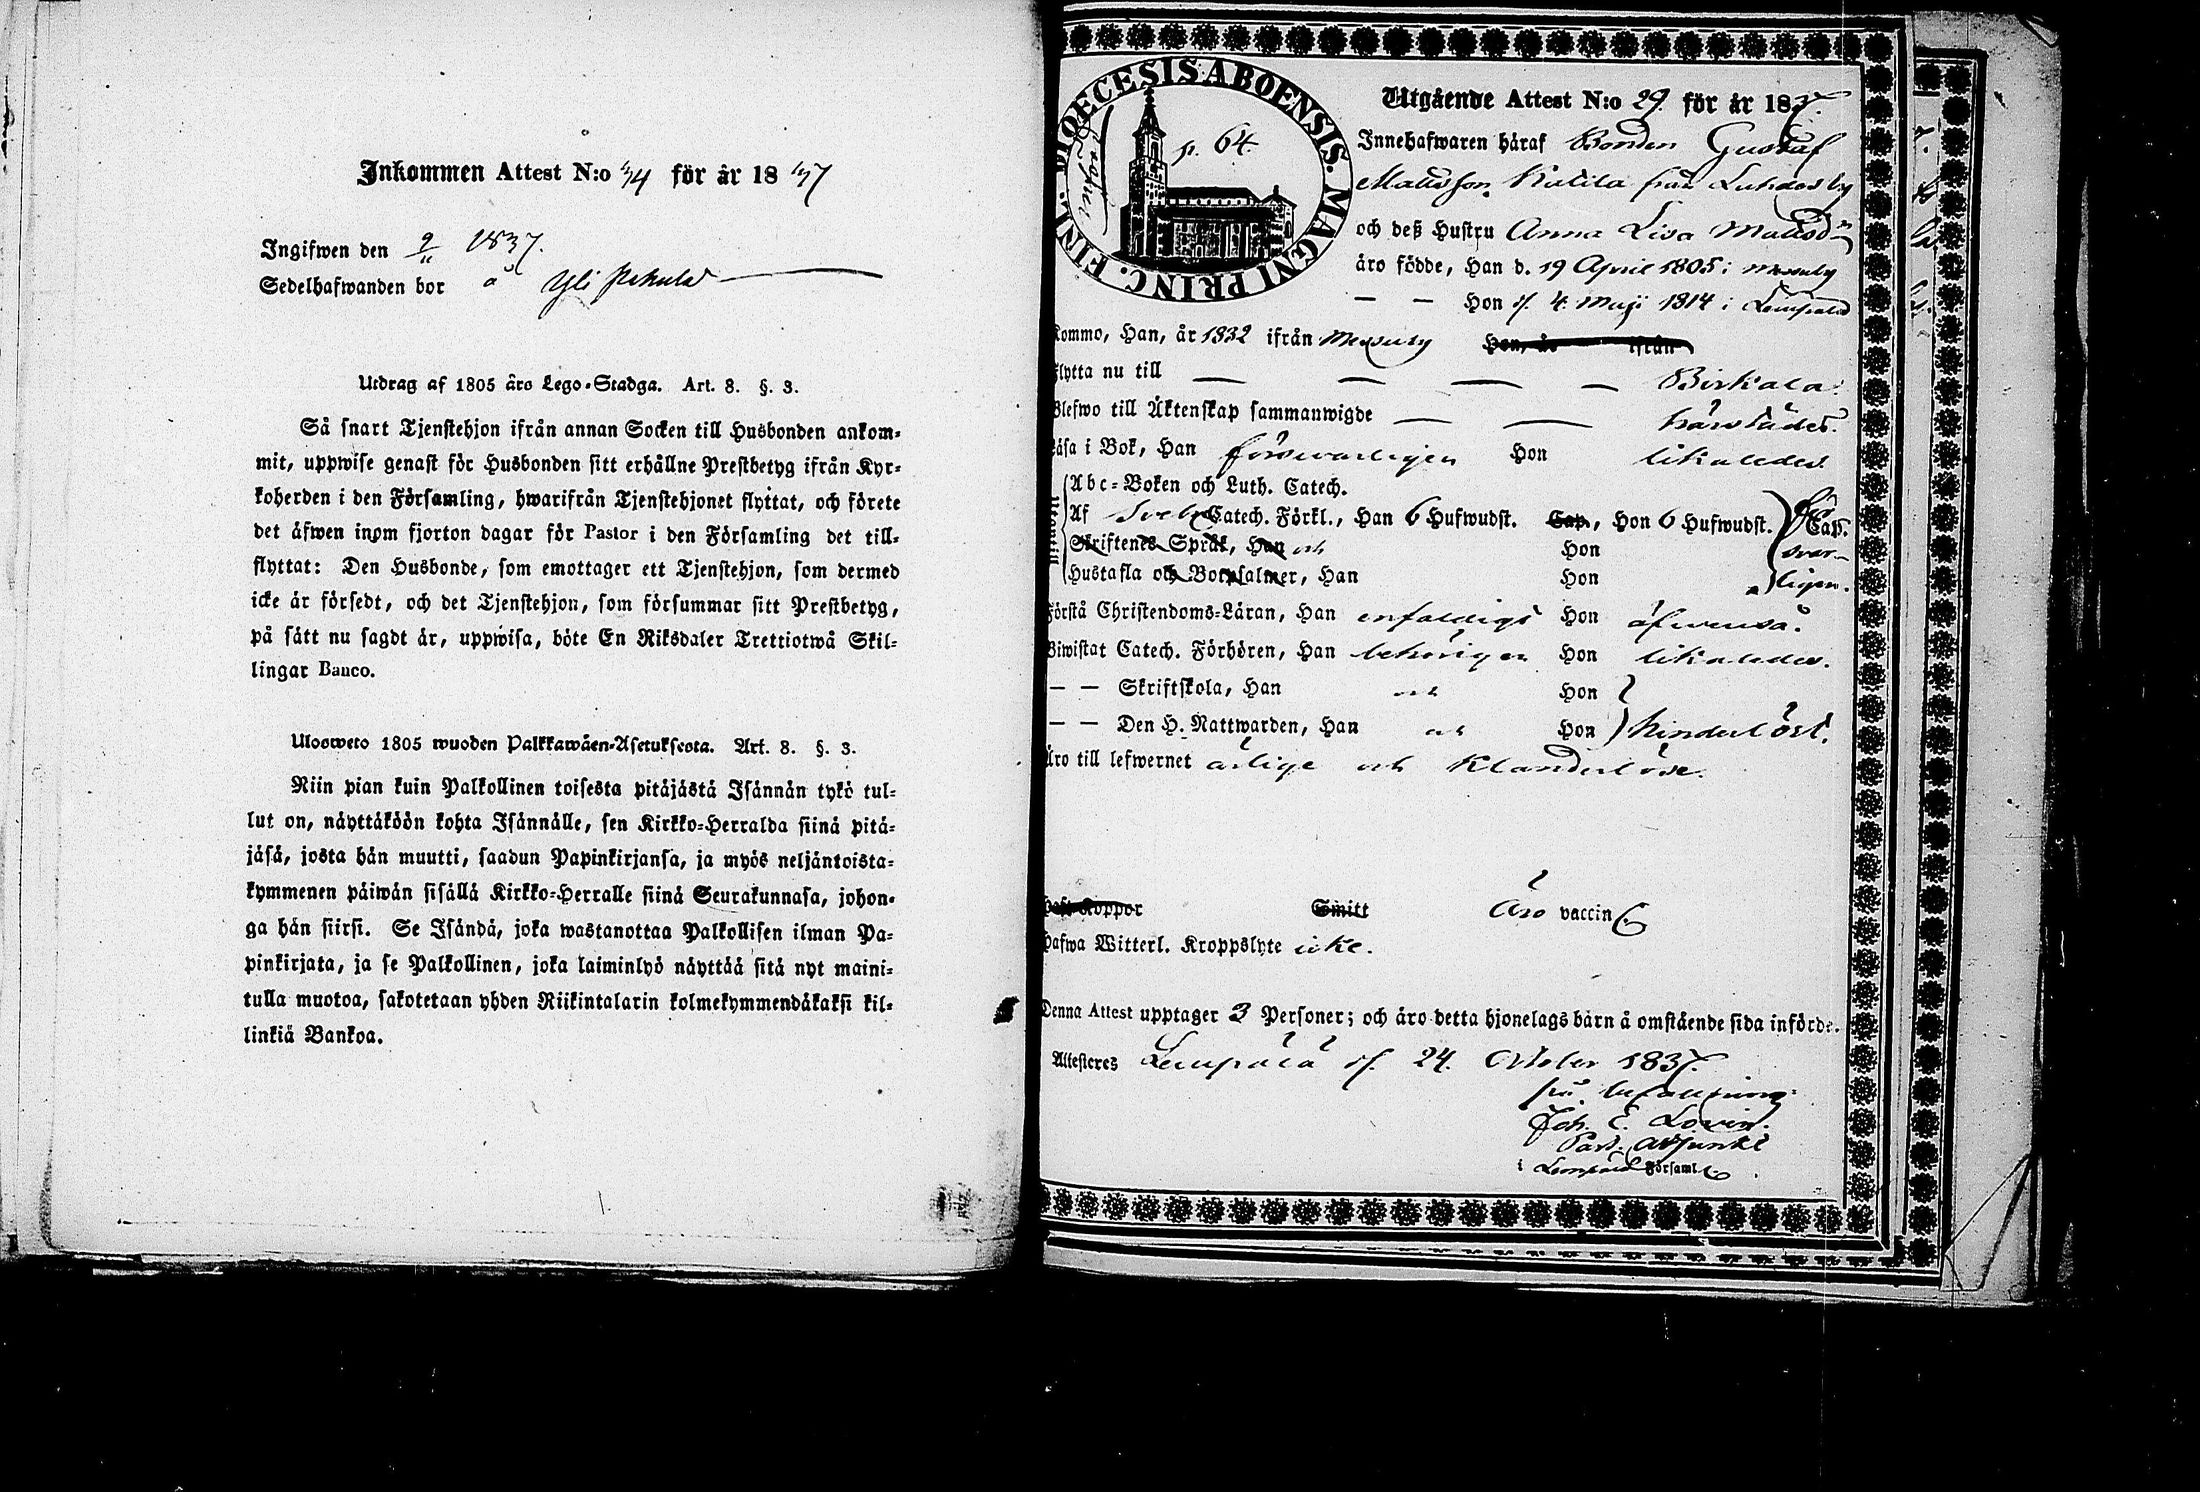 Inkommen Attest N:o 34 för år 1837
Ingifwen den 9/11 1837.
Sedelhafwanden bor å Yli Pekula
Utdrag af 1805 års Lego-Stadga. Art. 8. §. 3.
Så snart Tjenstehjon ifrån annan Socken till Husbonden ankom-
mit, uppwise genast för Husbonden sitt erhållne Prestbetyg ifrån Kyr-
koherden i den Församling, hwarifrån Tjenstehjonet flyttat, och förete
det äfwen inom fjorton dagar för Pastor i den Församling det till-
flyttat: Den Husbonde, som emottager ett Tjenstehjon, som dermed
icke är försedt, och det Tjenstehjon, som försummar sitt Prestbetyg,
på sätt nu sagdt är, uppwisa, böte En Riksdaler Trettiotwå Skil-
lingar Banco.
Ulosweto 1805 wuoden Palkkawäen-Asetuksesta. Art. 8. §. 3.
Niin pian kuin Palkollinen toisesta pitäjästä Isännän tykö tul-
lut on, näyttäköön kohta Isännälle, sen Kirkko-Herralda siinä pitä-
jäsä, josta hän muutti, saadun Papinkirjansa, ja myös neljäntoista-
kymmenen päiwän sisällä Kirkko-Herralle siinä Seurakunnasa, johon-
ga hän siirsi. Se Isändä, joka wastanottaa Palkollisen ilman Pa-
pinkirjata, ja se Palkollinen, joka laiminlyö näyttää sitä nyt maini-
tulla muotoa, sakotetaan yhden Riikintalarin kolmekymmendäkaksi kil-
linkiä Bankoa.
DIOECESIS ABOENSIS. MAGNI PRINC. FINL.
p. 64.
Utgående Attest N:o 29. för år 1837.
Innehafwaren häraf Bonden Gustaf
Mattsson Kulila från Luhdes by
och deß Hustru Anna Lisa Mattsd:r
äro födde, Han d. 19 April 1805 i Messuby
— — Hon d. 4. Maji 1814 i Lempälä
Kommo, Han, år 1832 ifrån Messuby Hon, år ifrån
Flytta nu till — — — — Birkala.
Blefwo till Äktenskap sammanwigde — — härstädes.
Läsa i Bok, Han förswarligen Hon likaledes.
Abc-Boken och Luth. Catech.
Af Sveb. Catech. Förkl., Han 6 Hufwudst. Cap., Hon 6 Hufwudst. Cap. för-
Skriftenes Språk, Han och Hon svar-
Hustafla och Botpsalmer, Han Hon ligen.
Förstå Christendoms-Läran, Han enfaldigt Hon äfwenså.
Biwistat Catech. Förhören, Han behörigen Hon likaledes.
— — Skriftskola, Han och Hon
— — Den H. Nattwarden, Han och Hon hinderlöst.
Äro till lefwernet ärlige och klanderlöse.
Haft Koppor Smitt Äro vaccin.
Hafwa Witterl. Kroppslyte icke.
Denna Attest upptager 3 Personer; och äro detta hjonelags barn å omstående sida införde.
Attesteres Lempälä d. 24. October 1837.
på befallning:
Joh. E. Lovin.
Past. Adjunkt
i Lempälä Församl.